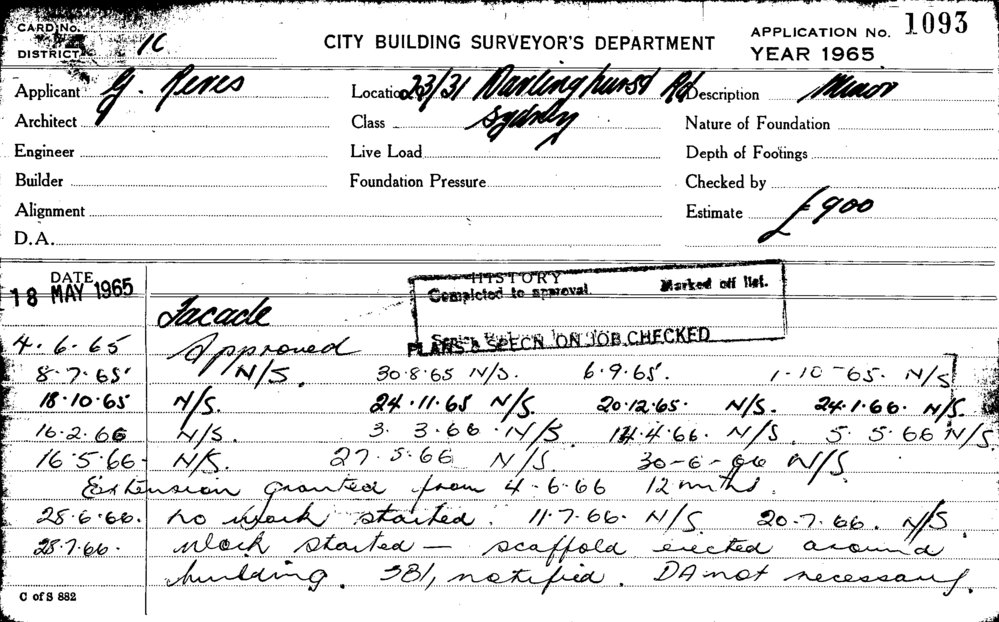 CARD No.
DISTRICT 1C
CITY BUILDING SURVEYOR'S DEPARTMENT
APPLICATION No. 1093
YEAR 1965
Applicant G. Reves Location 23/31 Darlinghurst Rd Description Minor
Architect Class Sydney Nature of Foundation
Engineer Live Load Depth of Footings
Builder Foundation Pressure Checked by
Alignment Estimate £900
D.A.
DATE HISTORY
18 MAY 1965 Completed to approval. Marked off list.
Facade
PLANS & SPECN ON JOB CHECKED
4.6.65 Approved
8.7.65 N/S. 30.8.65 N/S. 6.9.65. 1-10-65. N/S
18.10.65 N/S. 24.11.65 N/S. 20.12.65. N/S. 24.1.66. N/S.
16.2.66 N/S. 3.3.66. N/S 14.4.66. N/S. 5.5.66 N/S.
16.5.66- N/S. 27.5.66 N/S 30-6-66 N/S
Extension granted from 4-6-66 12 mths.
28.6.66. no work started. 11.7.66. N/S 20.7.66. N/S
28.7.66. Work started — scaffold erected around
building. notified. DA not necessary.
C of S 882